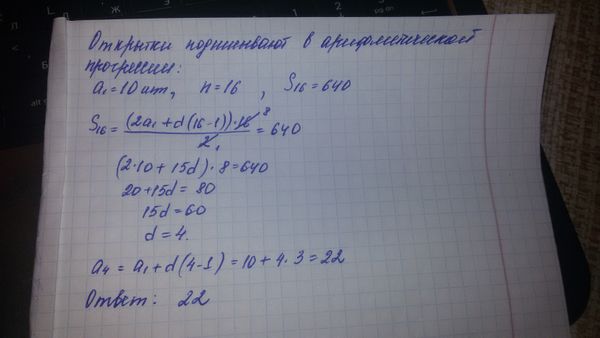 Открытки подписывают в арифметической
прогрессии:
a₁=10 шт, n=16 , S₁₆=640
S₁₆ = (2a₁+d(16-1))·16 8 / 2 1 = 640
(2·10+15d)·8=640
20+15d=80
15d=60
d=4.
a₄=a₁+d(4-1)=10+4·3=22
Ответ: 22